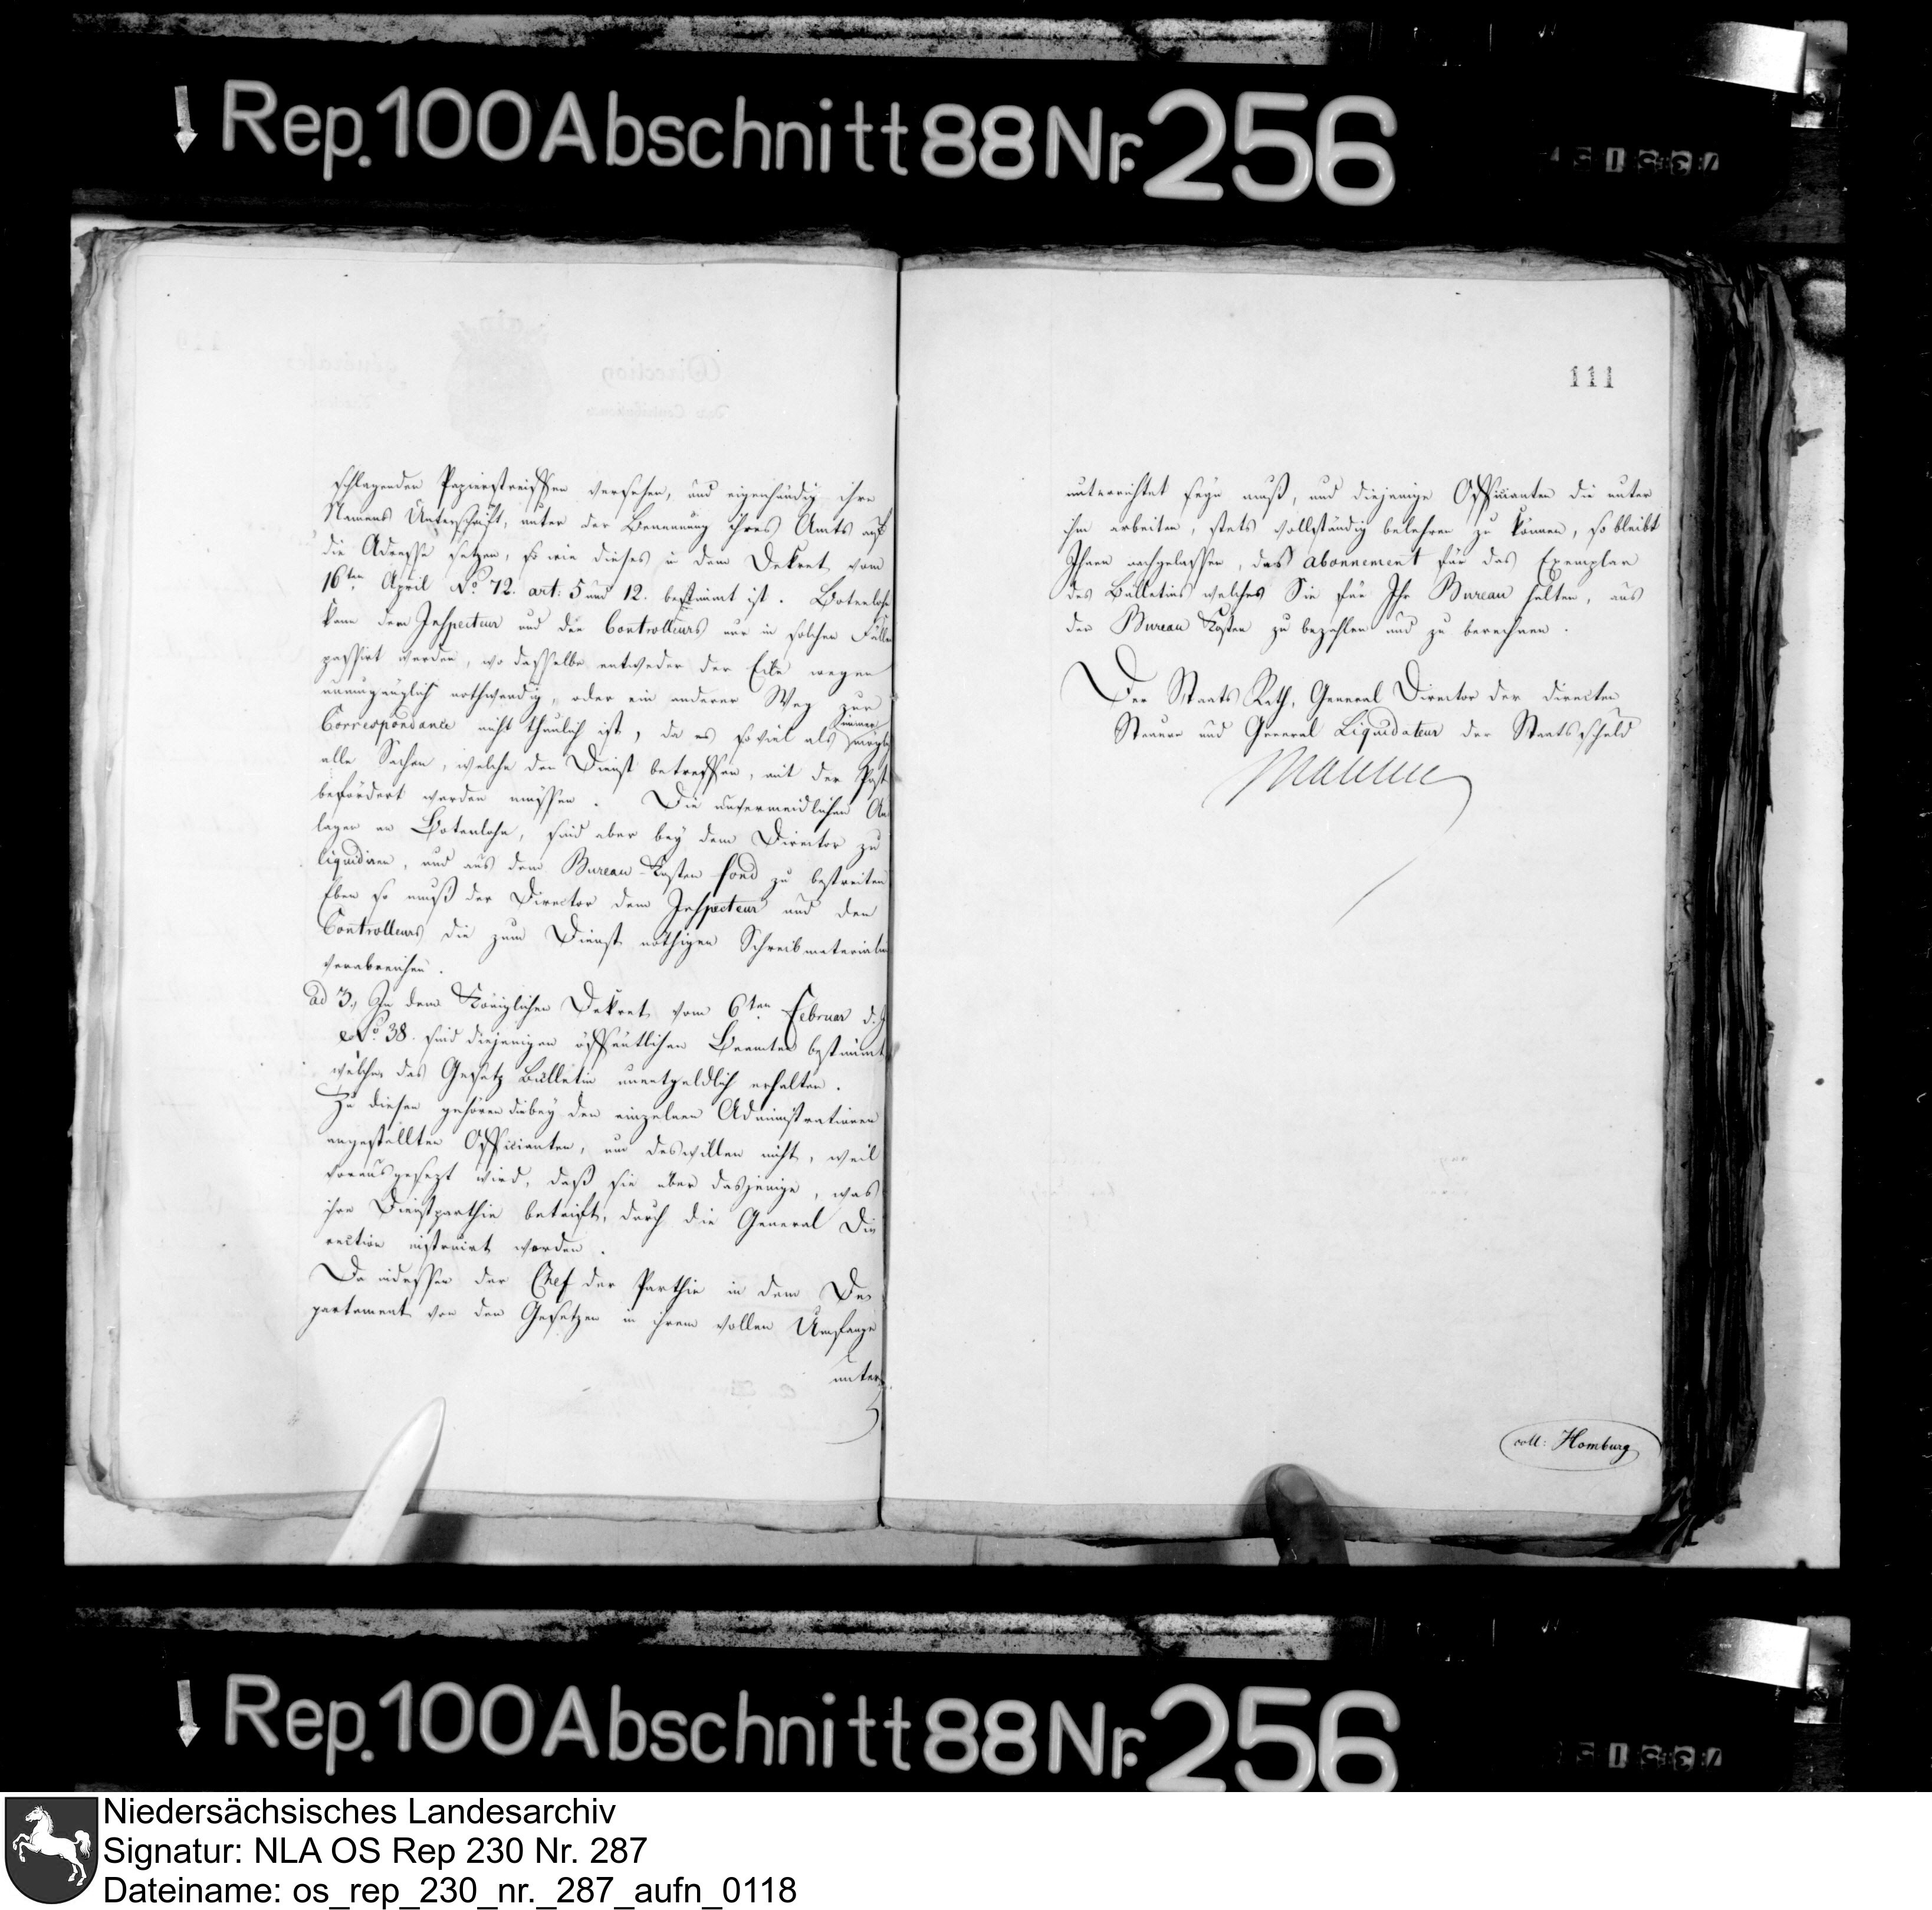 Rep. 100 Abschnitt 88 Nr. 256
schlagenden Papierstreiffen versehen, und eigenhändig ihre
Namens Unterschrift, unter der Benennung ihres Amts auf
die Adresse setzen, so wie dieses in dem Dekret vom
16ten April No. 72. art: 5 und 12. bestimmt ist. Botenlohn
kann dem Inspecteur und den Controlleurs nur in solchen Fällen
passirt werden, wo dasselbe entweder der Eile wegen
unumgänglich nothwendig, oder ein anderer Weg zur
Correspondance nicht thunlich ist, da es soviel als immer möglich
alle Sachen, welche den Dienst betreffen, mit der Post
befördert werden müssen. Die unvermeidlichen An
lagen an Botenlohn, sind aber bey dem Director zu
liquidiren, und aus dem Bureau-Kosten fond zu bestreiten
Eben so muß der Director dem Inspecteur und den
Controlleurs die zum Dienst nöthigen Schreibmaterialien
verabreichen.
ad 3., In dem Königlichen Dekret vom 6ten Februar d. J
No. 38. sind diejenigen öffentlichen Beamten bestimmt
welche das Gesetz Bulletin unentgeldlich erhalten.
Zu diesen gehören die bey den einzelnen Administrationen
angestellten Officianten, um deswillen nicht, weil
vorausgesezt wird, daß sie über dasjenige, was
ihre Dienstparthie betrift, durch die General Di
rection instruirt werden.
Da indessen der Chef der Parthie in dem De
partement von den Gesetzen in ihrem vollen Umfange
unter
111
unterrichtet seyn muß, und diejenige Officianten die unter
ihm arbeiten, stets vollständig belehren zu können, so bleibt
Ihnen nachgelassen, das abonnement für das Exemplar
des Bulletins welches Sie für Ihr Bureau halten, aus
den Bureau Kosten zu bezahlen und zu berechnen.
Der Staats Rath, General Director der directen
Steuern und General Liquidateur der Staatsschuld
Malchus
coll: Homburg
Rep. 100 Abschnitt 88 Nr. 256
Niedersächsisches Landesarchiv
Signatur: NLA OS Rep 230 Nr. 287
Dateiname: os_rep_230_nr._287_aufn_0118